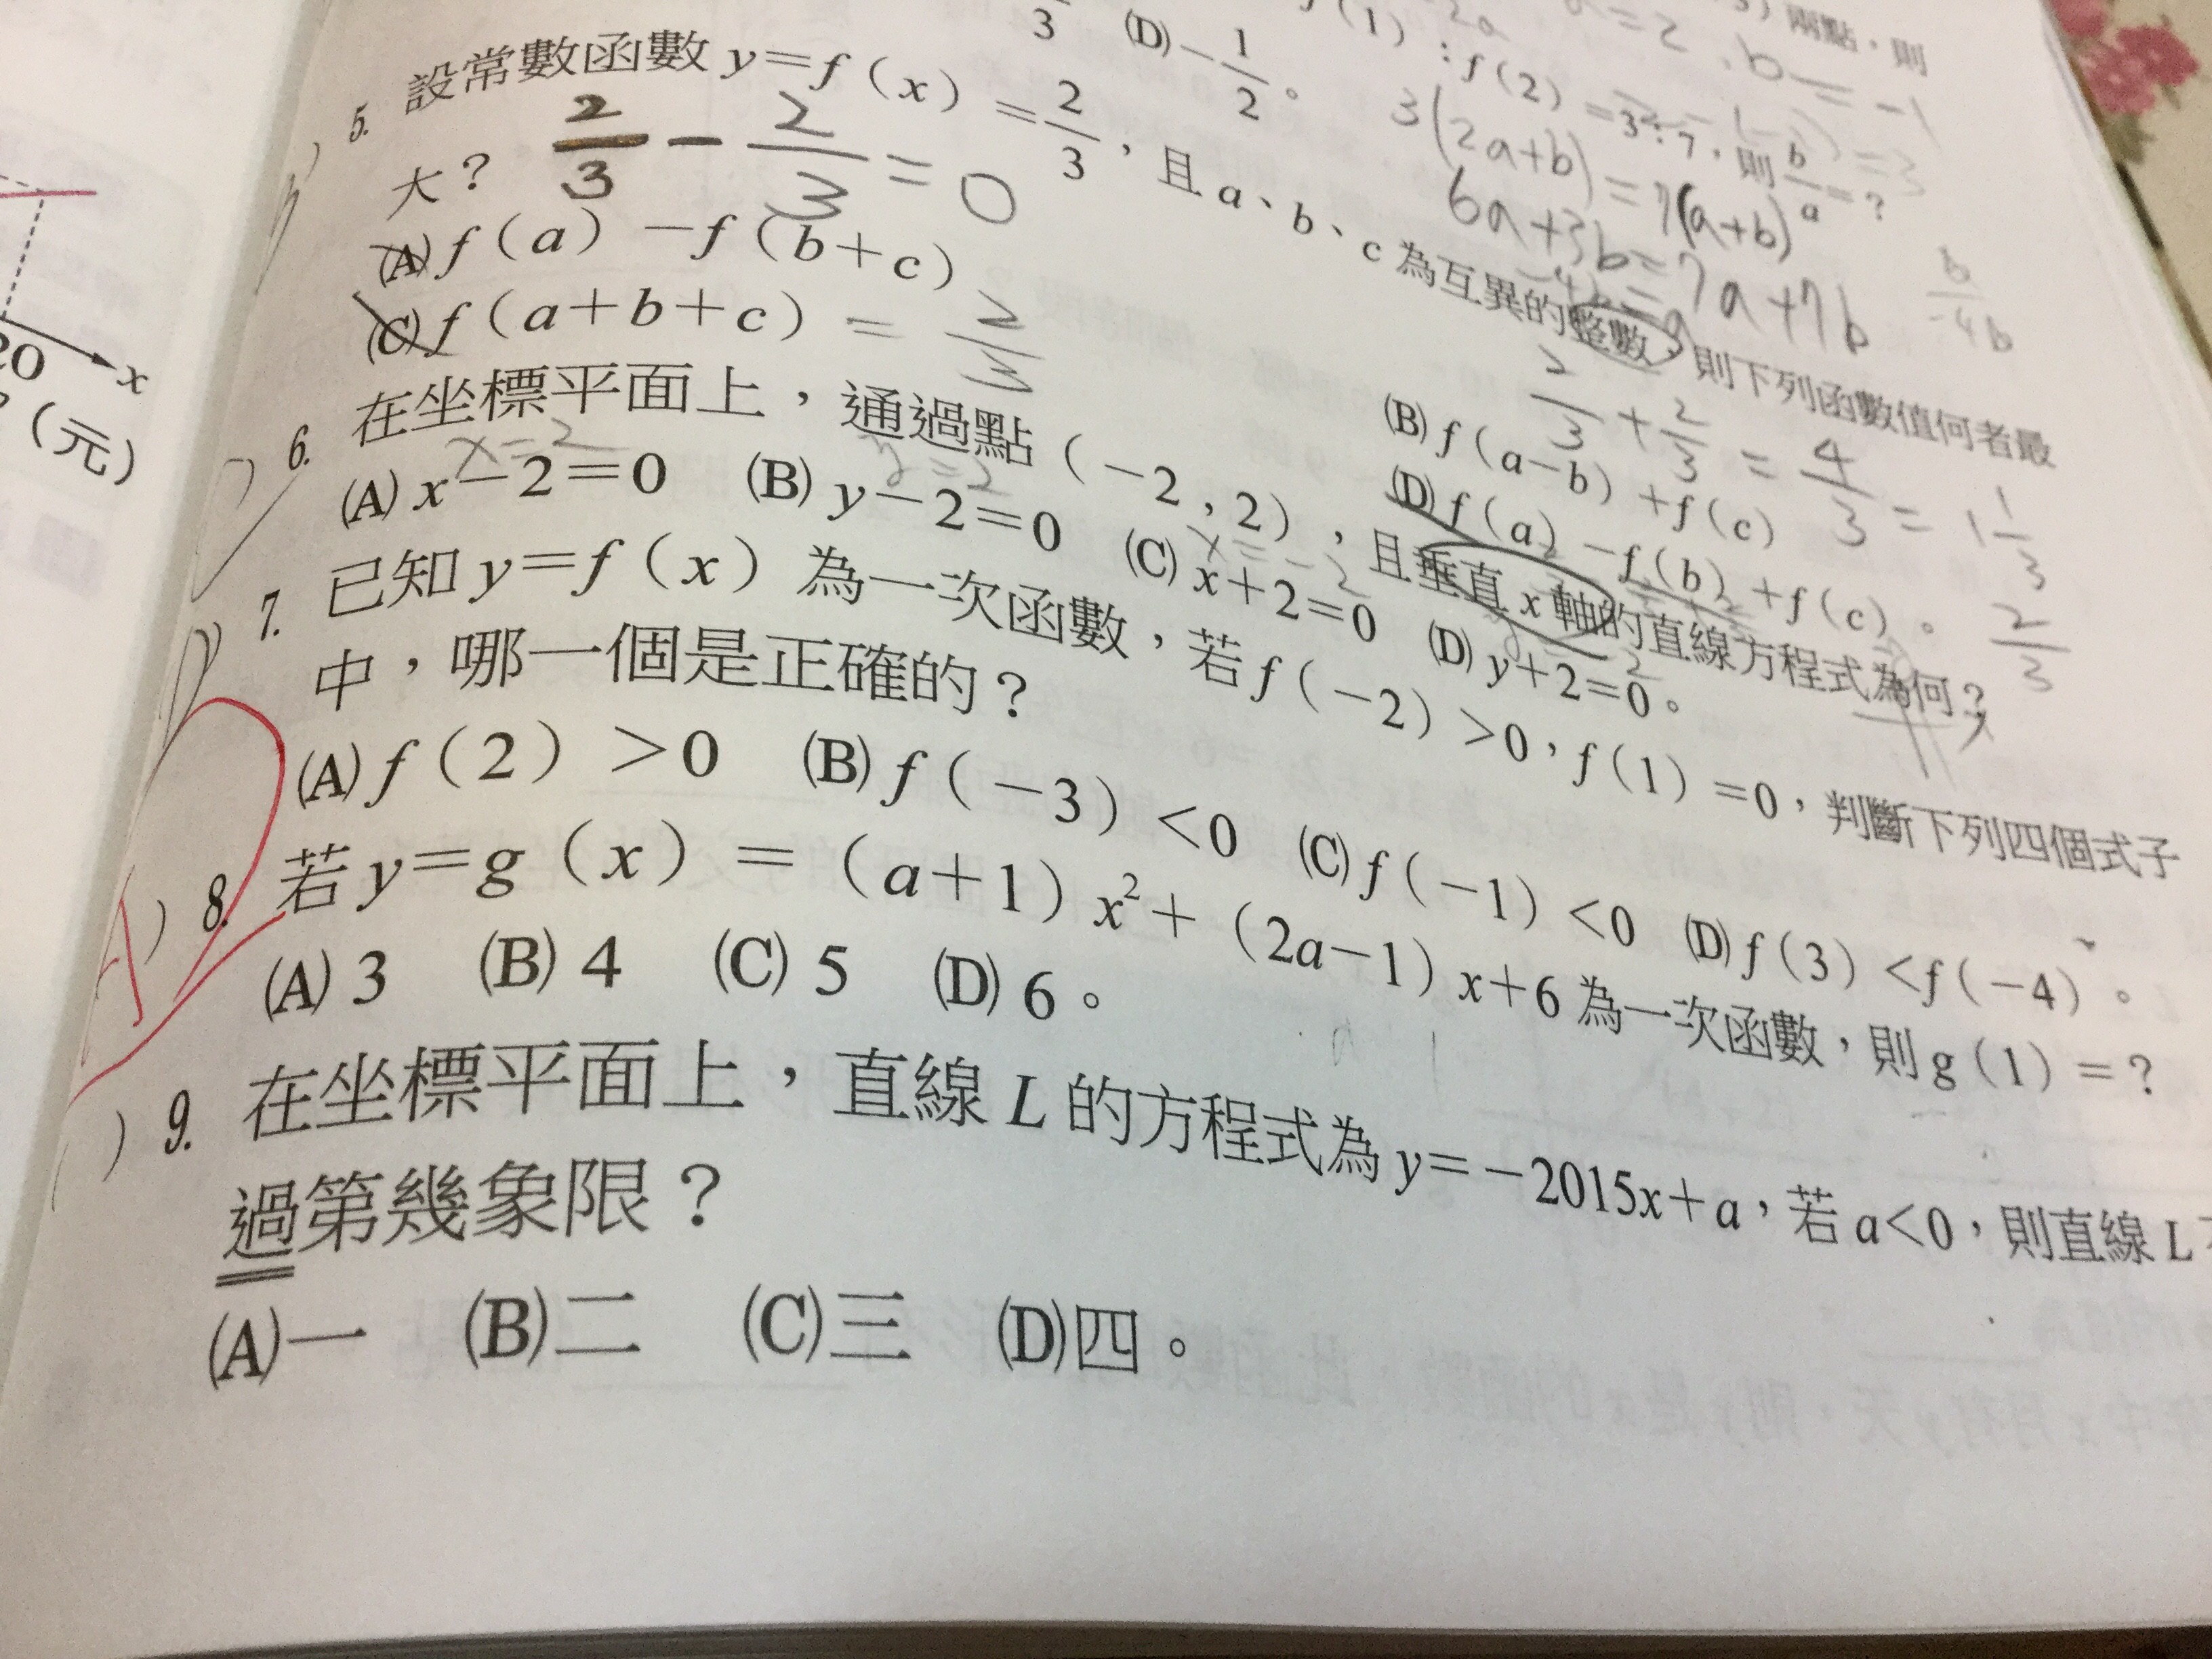 3 (D) −1/2。
f(1):f(2)=3:7,則 b/a=?
兩點,則
a=2,b=−1
3(2a+b)=7(a+b)
6a+3b=7a+7b
−4b=a
b/−4b
5. 設常數函數 y=f(x)=2/3,且 a、b、c 為互異的整數,則下列函數值何者最
大?
2/3−2/3=0
(A) f(a)−f(b+c)
(B) f(a−b)+f(c)
2/3+2/3=4/3=1 1/3
(C) f(a+b+c)
=2/3
(D) f(a)−f(b)+f(c)。
2/3
6. 在坐標平面上,通過點(−2,2),且垂直 x 軸的直線方程式為何?
x=2 y=2 x=−2
(A) x−2=0 (B) y−2=0 (C) x+2=0 (D) y+2=0。
7. 已知 y=f(x)為一次函數,若 f(−2)>0,f(1)=0,判斷下列四個式子
中,哪一個是正確的?
(A) f(2)>0 (B) f(−3)<0 (C) f(−1)<0 (D) f(3)<f(−4)。
)8. 若 y=g(x)=(a+1)x²+(2a−1)x+6 為一次函數,則 g(1)=?
(A) 3 (B) 4 (C) 5 (D) 6。
)9. 在坐標平面上,直線 L 的方程式為 y=−2015x+a,若 a<0,則直線 L
過第幾象限?
(A)一 (B)二 (C)三 (D)四。
20
x
(元)